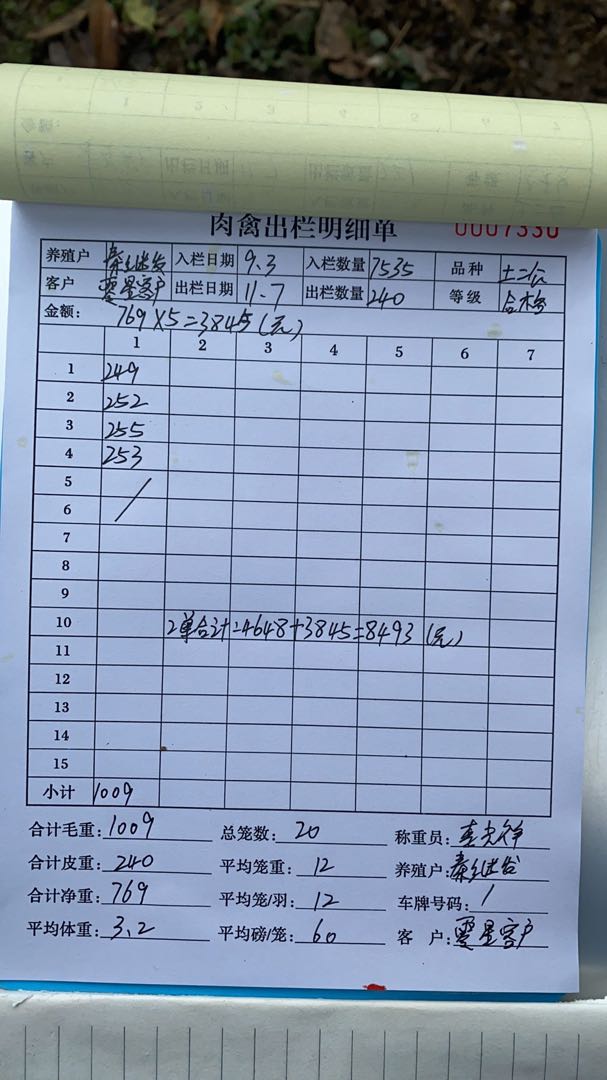 肉禽出栏明细单 0007330
养殖户 秦继发 入栏日期 9.3 入栏数量 7535 品种 土二
客户 零星客户 出栏日期 11.7 出栏数量 240 等级 合格
金额: 769×5=3845(元)
1 2 3 4 5 6 7
1 249
2 252
3 255
4 253
5
6
7
8
9
10 2单合计=4648+3845=8493(元)
11
12
13
14
15
小计 1009
合计毛重: 1009 总笼数: 20 称重员:
合计皮重: 240 平均笼重: 12 养殖户: 秦继发
合计净重: 769 平均笼/羽: 12 车牌号码: /
平均体重: 3.2 平均磅/笼: 60 客 户: 零星客户